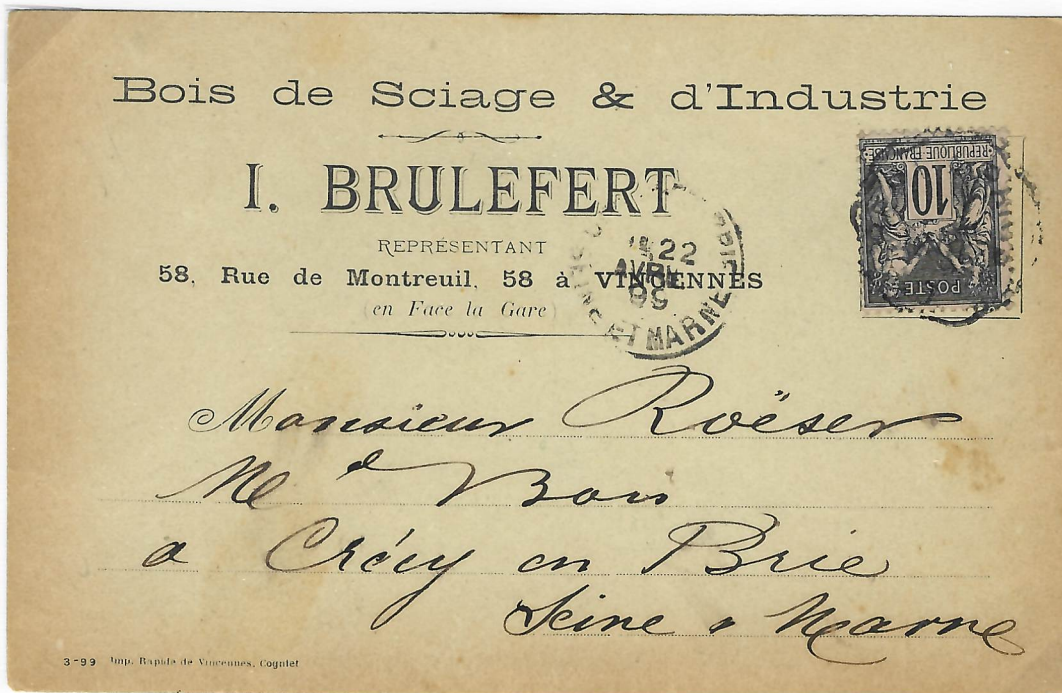 Bois de Sciage & d'Industrie
I. BRULEFERT
REPRÉSENTANT
58, Rue de Montreuil, 58 à VINCENNES
(en Face la Gare)
REPUBLIQUE FRANÇAISE
10
POSTE
22
AVRIL
99
SEINE ET MARNE
Monsieur Roëser
Md Bois
a Crécy en Brie
Seine & Marne
3-99 Imp. Rapide de Vincennes, Cognlet